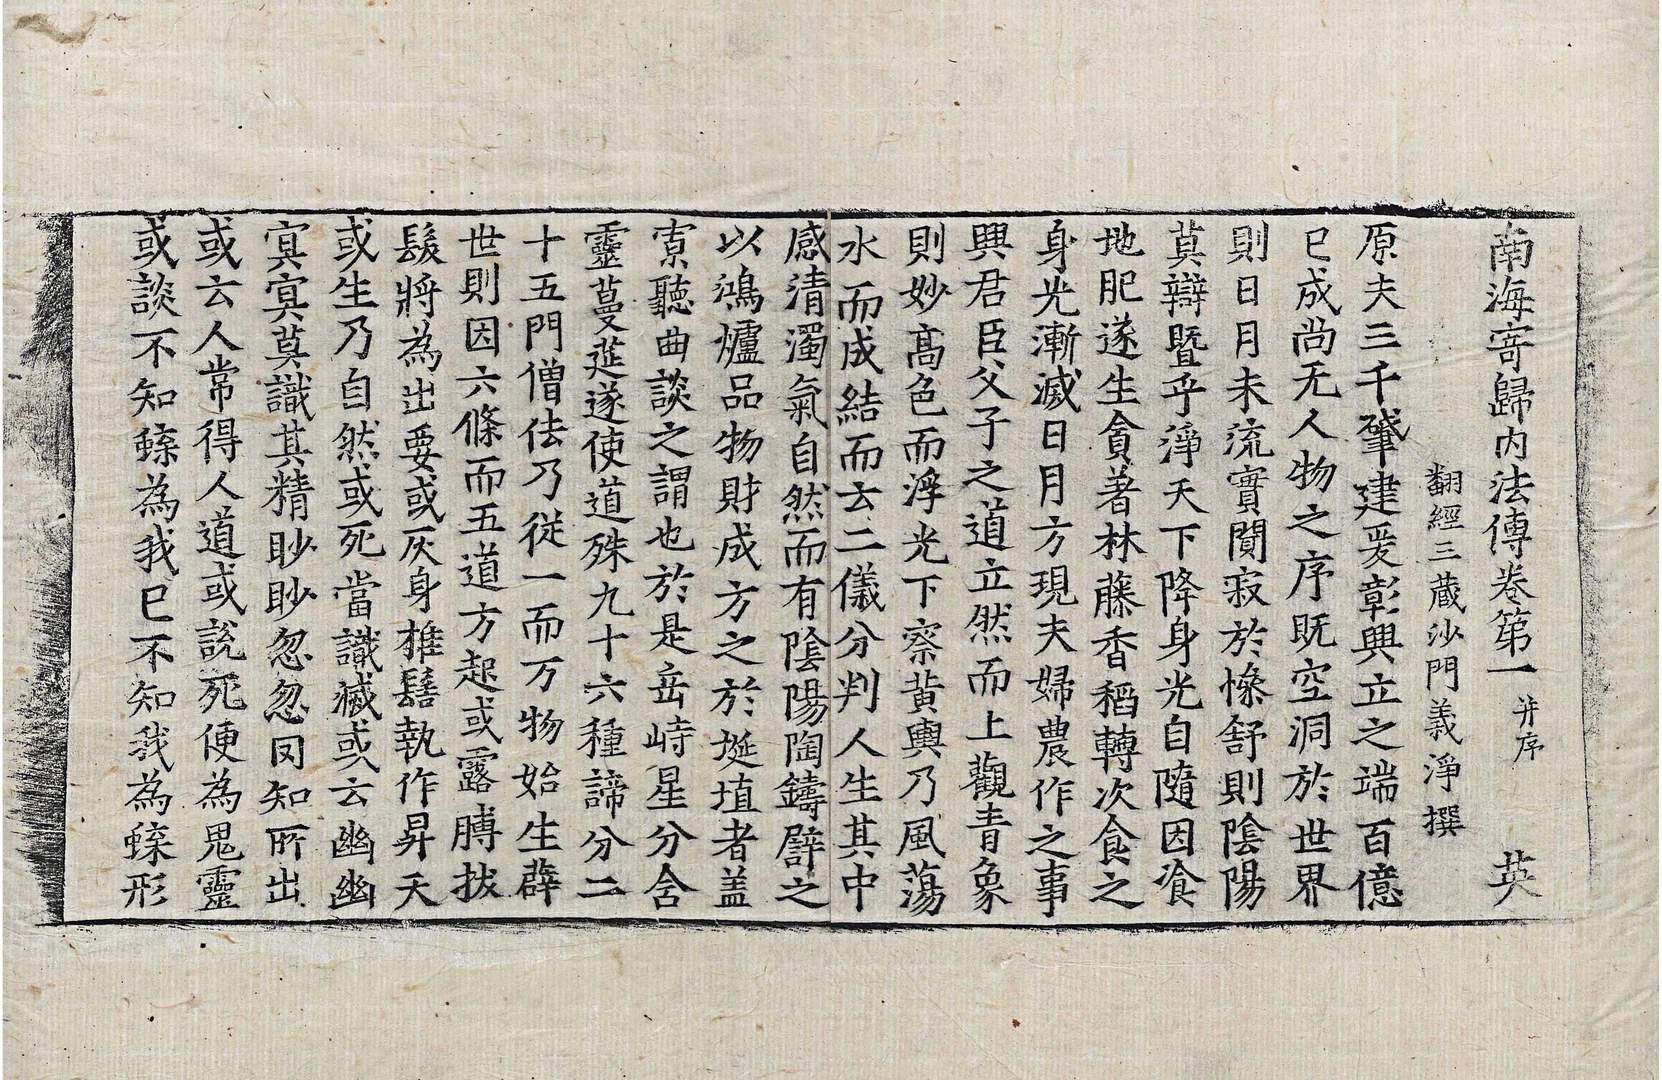 南海寄歸內法傳卷第一 并序 英
翻經三蔵沙門義淨撰
原夫三千肇建爰彰興立之端百億
已成尚无人物之序既空洞於世界
則日月未流實閴寂於慘舒則陰陽
莫辯暨乎淨天下降身光自隨因飡
地肥遂生貪著林藤香稻轉次食之
身光漸滅日月方現夫婦農作之事
興君臣父子之道立然而上觀青象
則妙高色而浮光下察黃輿乃風蕩
水而成結而云二儀分判人生其中
感清濁氣自然而有陰陽陶鑄譬之
以鴻爐品物財成方之於埏埴者盖
寡聽曲談之謂也於是岳峙星分含
靈蔓莚遂使道殊九十六種諦分二
十五門僧佉乃從一而万物始生薜
世則因六條而五道方起或露膊拔
髮將為出要或灰身椎髻執作昇天
或生乃自然或死當識滅或云幽幽
冥冥莫識其精眇眇忽忽罔知所出
或云人常得人道或說死便為鬼靈
或談不知蝶為我已不知我為蝶形